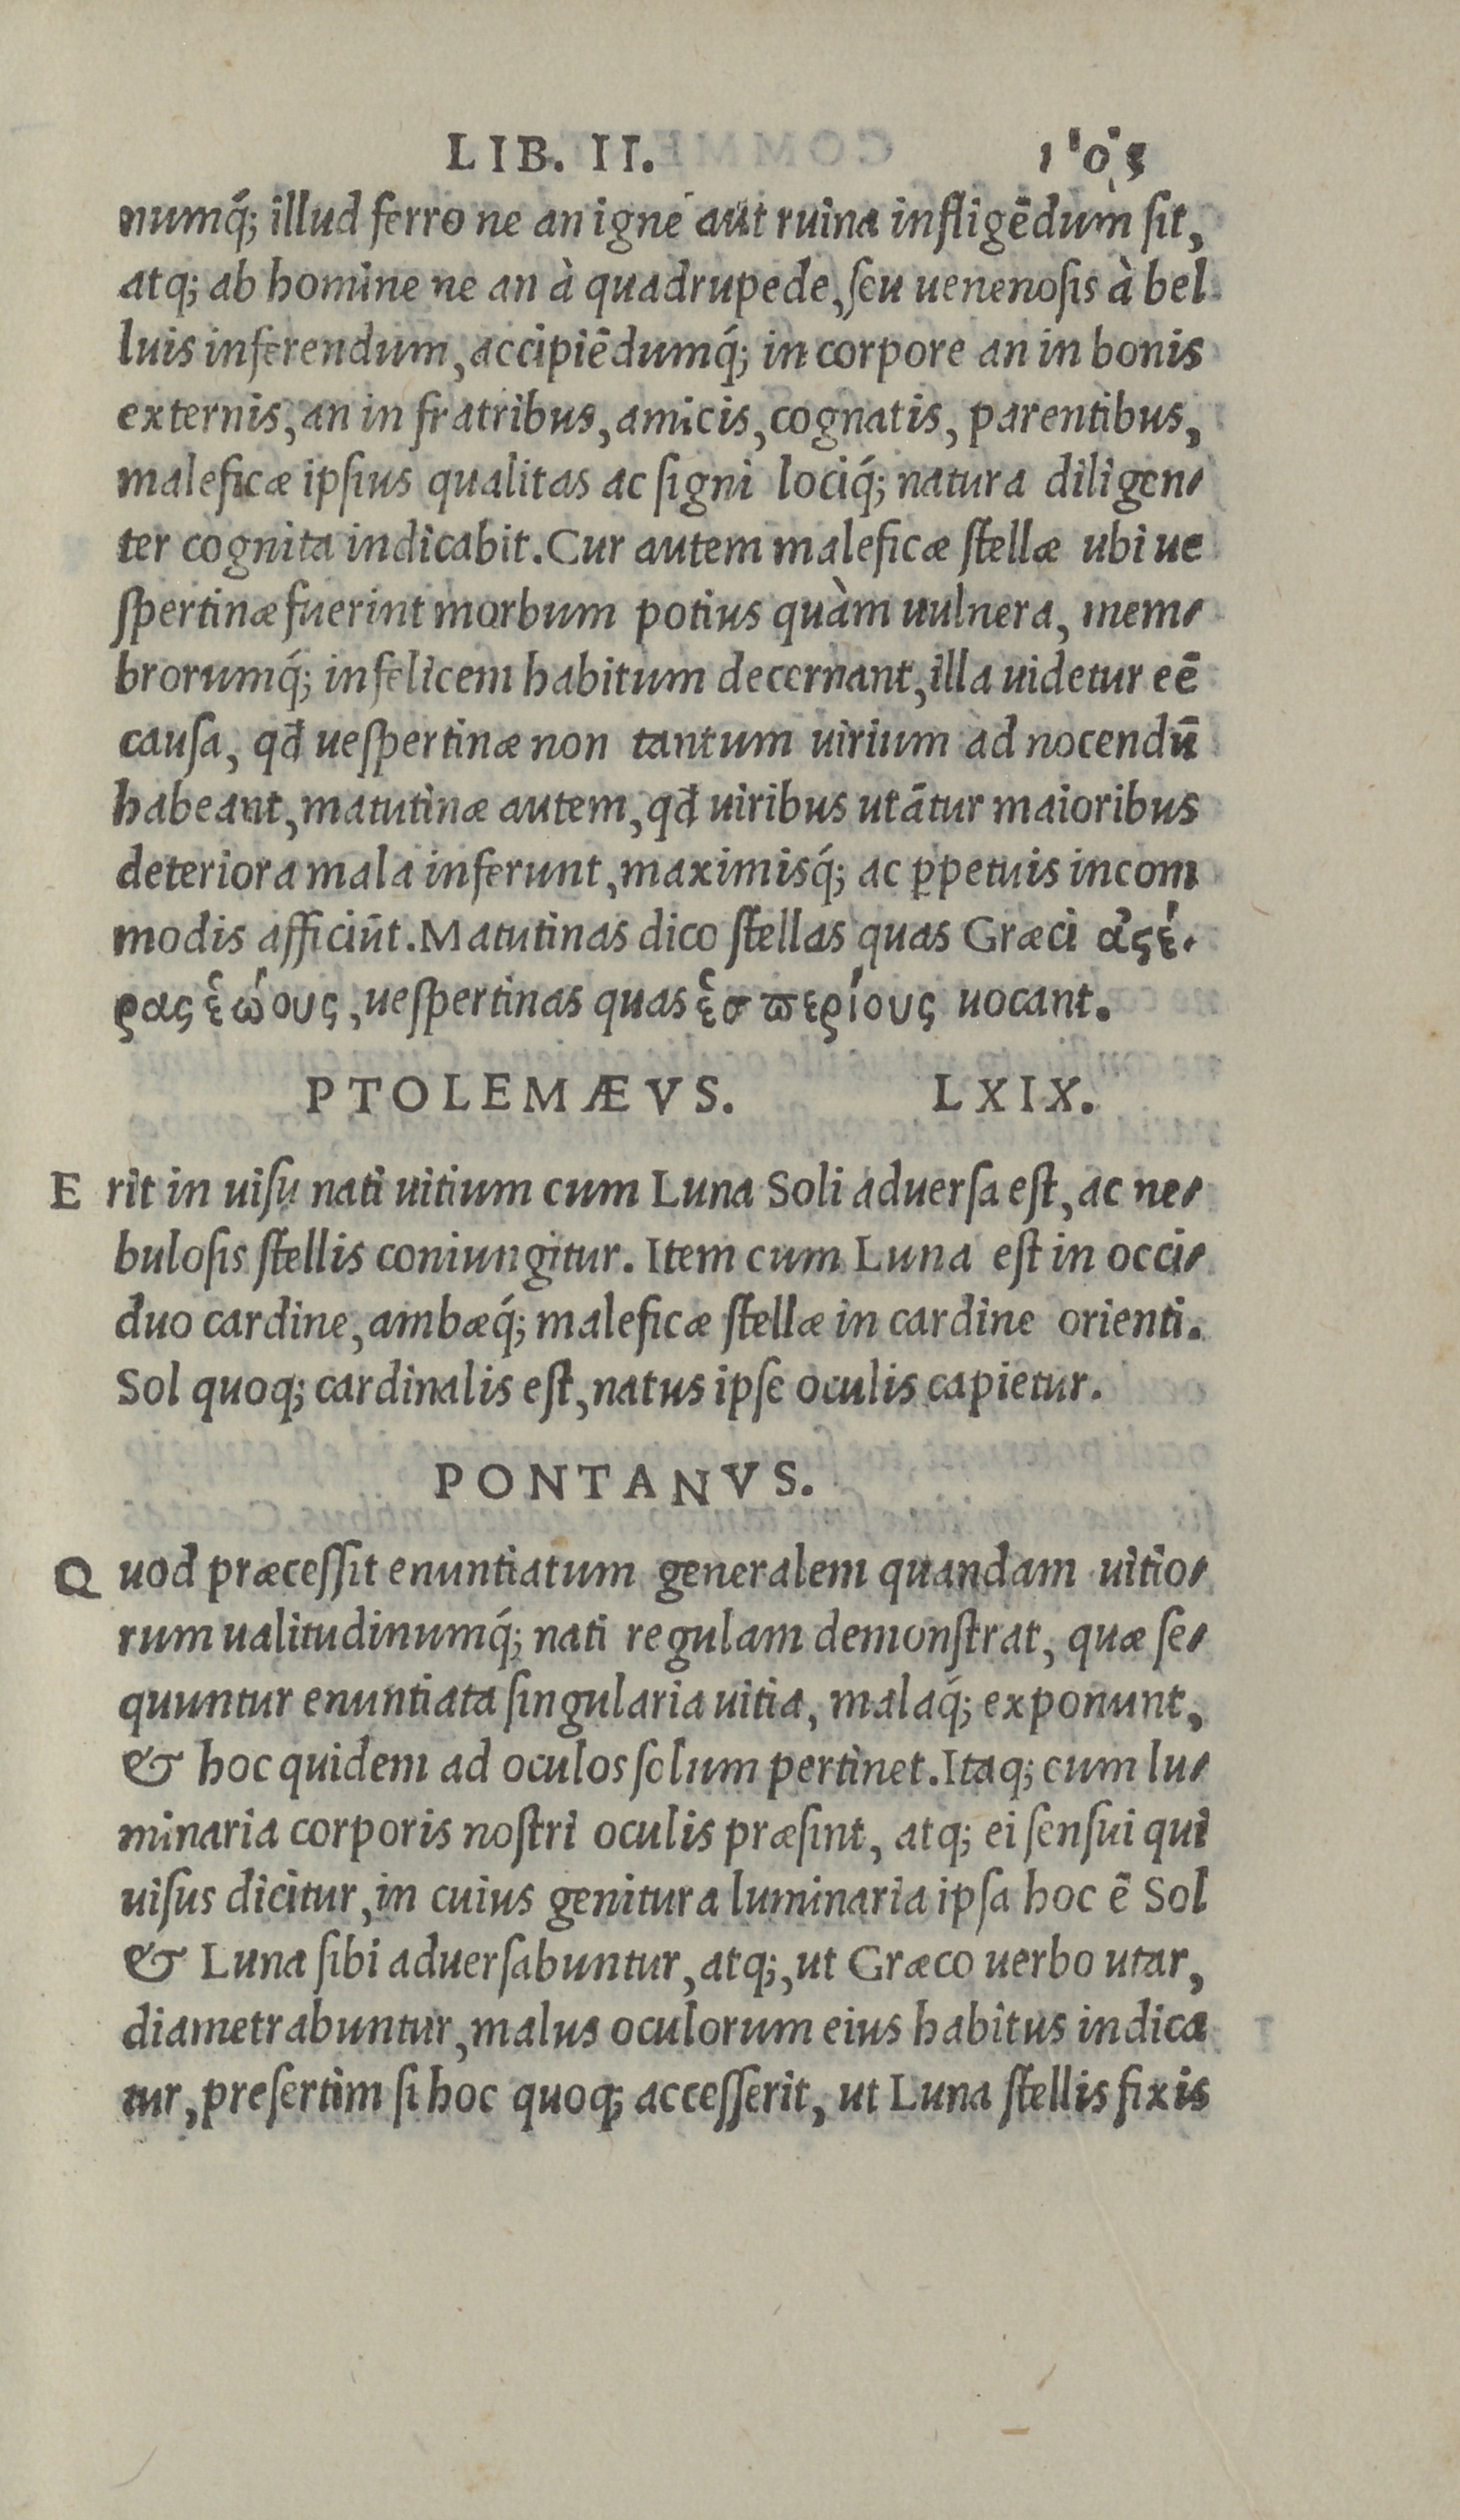 LIB. II. 105
numq́; illud ferro ne an igne aut ruina infligēdum sit,
atq; ab homine ne an à quadrupede, seu uenenosis à bel
luis inferendum, accipiēdumq́; in corpore an in bonis
externis, an in fratribus, amicis, cognatis, parentibus,
maleficæ ipsius qualitas ac signi lociq́; natura diligen-
ter cognita indicabit. Cur autem maleficæ stellæ ubi ue
spertinæ fuerint morbum potius quàm uulnera, mem-
brorumq́; infelicem habitum decernant, illa uidetur eē
causa, qđ uespertinæ non tantum uirium ad nocendū
habeant, matutinæ autem, qđ uiribus utātur maioribus
deteriora mala inferunt, maximisq́; ac ꝑpetuis incom
modis afficiūt. Matutinas dico stellas quas Græci ἀςέ-
ρας ἑῴους, uespertinas quas ἑσπερίους uocant.
PTOLEMÆVS. LXIX.
E rit in uisu nati uitium cum Luna Soli aduersa est, ac ne-
bulosis stellis coniungitur. Item cum Luna est in occi-
duo cardine, ambæq́; maleficæ stellæ in cardine orienti.
Sol quoq; cardinalis est, natus ipse oculis capietur.
PONTANVS.
Q uod præcessit enuntiatum generalem quandam uitio-
rum ualitudinumq́; nati regulam demonstrat, quæ se-
quuntur enuntiata singularia uitia, malaq́; exponunt,
& hoc quidem ad oculos solum pertinet. Itaq; cum lu-
minaria corporis nostri oculis præsint, atq; ei sensui qui
uisus dicitur, in cuius genitura luminaria ipsa hoc ē Sol
& Luna sibi aduersabuntur, atq;, ut Græco uerbo utar,
diametrabuntur, malus oculorum eius habitus indica
tur, presertim si hoc quoq; accesserit, ut Luna stellis fixis